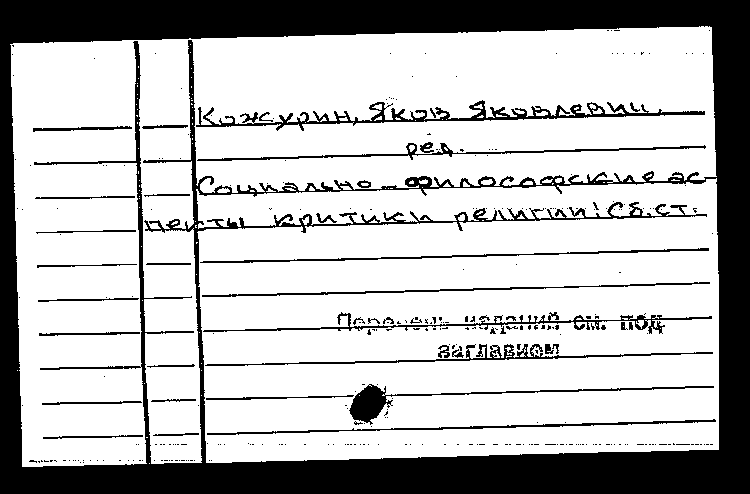 Кожурин, Яков Яковлевич,
ред.
Социально-философские ас-
пекты критики религии: Сб.ст.
Перечень изданий см. под
заглавием